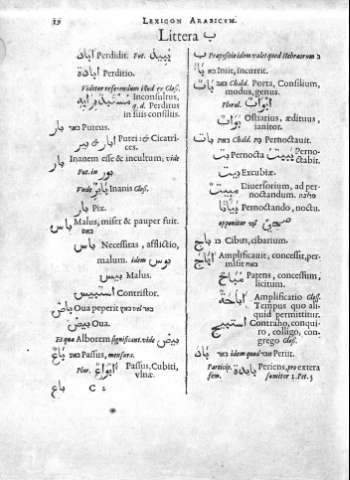 LEXICON ARABICUM.
Littera ب
اباد Perdidit. Fut. يبيد
ابادة Perditio.
Videtur referendum illud ex Glos.
Inconsultus,
q.d. Perditus
in suis consiliis.
بار Puteus.
ابار Putei & Cicatri-
ces.
بار Inanem esse & incultum, vide
Fut. in بور
Vnde باير Inanis Glos.
بار Pix.
باس Malus, miser & pauper fuit.
באס
باس Necessitas, afflictio,
malum. idem بوس
بيس Malus.
Contristor.
باض Oua peperit
بيض Oua.
Et qua Alborem significant. vide بيض
باع Passus, mensura.
Plur. ابواع Passus, Cubiti,
vlnæ.
C 2
باع
ب Præpositio idem valet quod Hebraorum ב
Iniit, incurrit.
Chald. Porta, Consilium,
modus, genus.
Plural. ابواب
بواب Ostiarius, ædituus,
ianitor.
بات Chald. Pernoctauit.
بت Pernocta يبيت Perno-
ctabit.
Excubiæ.
مبيت Diuersorium, ad per-
noctandum.
بياتا Pernoctando, noctu.
opponitur
باج Cibus, cibarium.
اباح Amplificauit, concessit, per-
misit
مباح Patens, concessum,
licitum.
اباحة Amplificatio Glos.
Tempus quo ali-
quid permittitur.
استبيح Contraho, conqui-
ro, colligo, con-
grego Glos.
باد idem quod Periit.
Particip. بايدة Periens, pro extera
fem. sumitur 1. Pet. 5